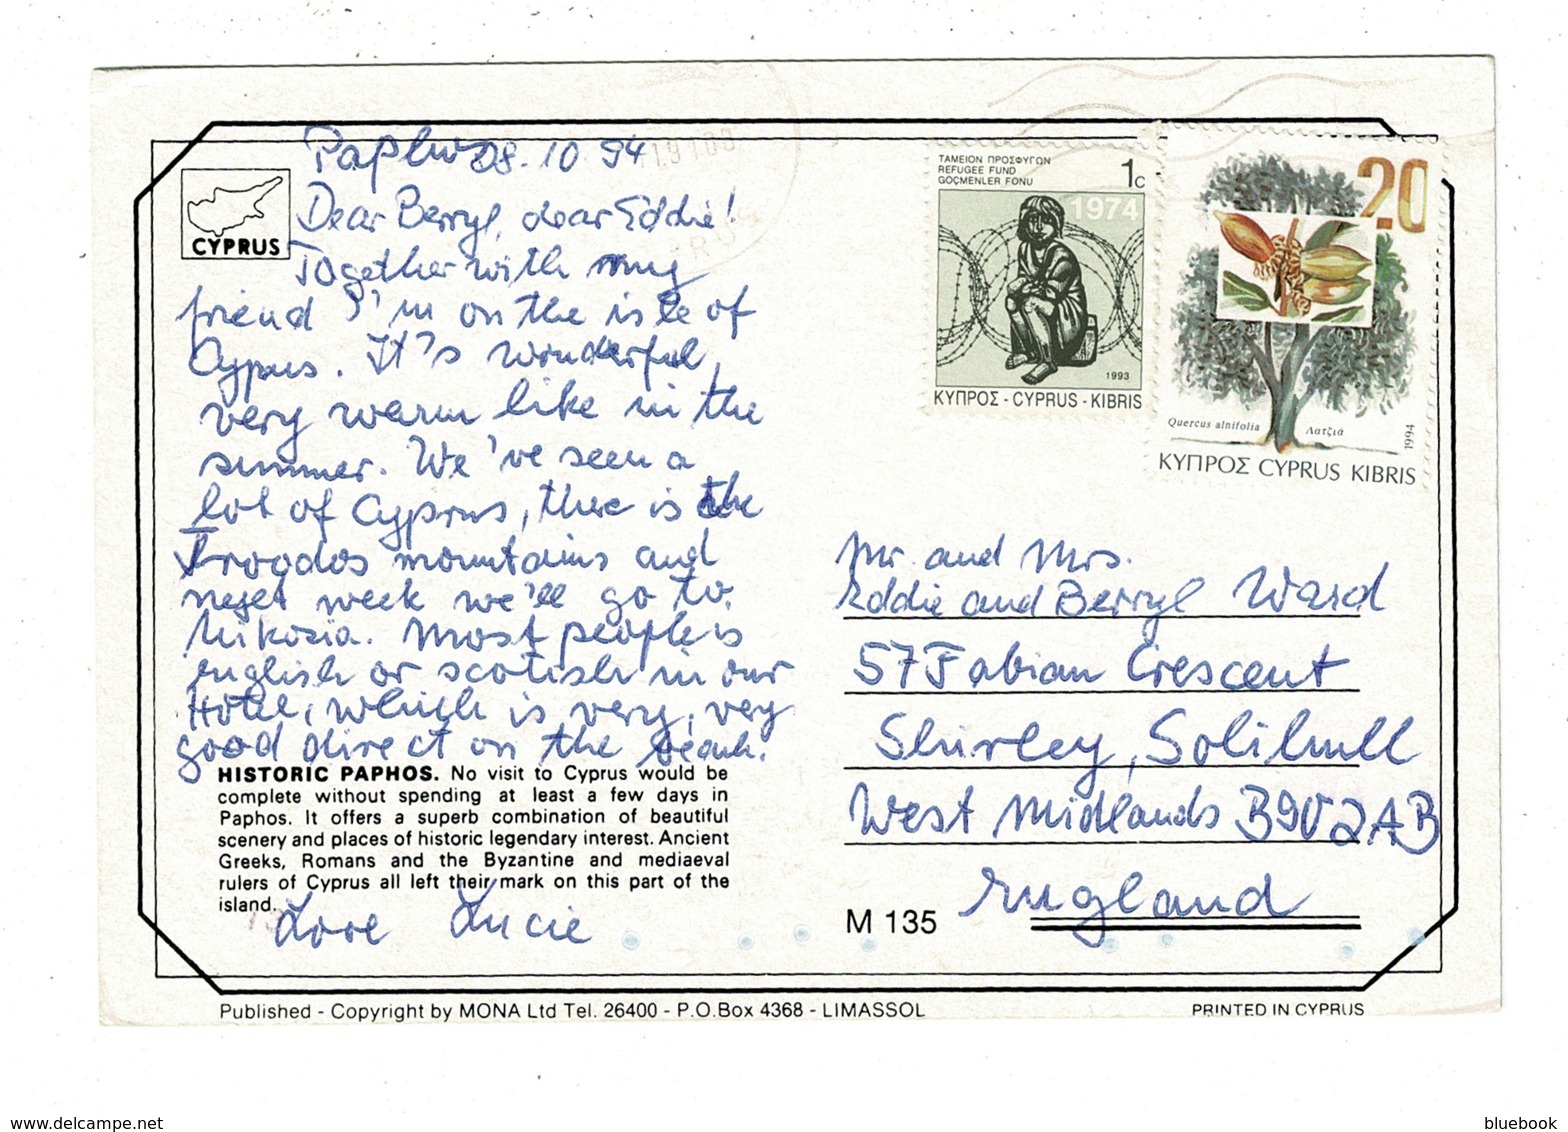 Paphos 08.10 94
CYPRUS
Dear Berryl, dear Eddie!
Together with my
friend I'm on the isle of
Cyprus. It's wonderful,
very warm like in the
summer. We've seen a
lot of Cyprus, there is the
Troodos mountains and
next week we'll go to
Nikosia. Most people is
english or scotish in our
Hotel, which is very, very
good direct on the beach.
HISTORIC PAPHOS. No visit to Cyprus would be
complete without spending at least a few days in
Paphos. It offers a superb combination of beautiful
scenery and places of historic legendary interest. Ancient
Greeks, Romans and the Byzantine and mediaeval
rulers of Cyprus all left their mark on this part of the
island.
Love Lucie
ΤΑΜΕΙΟΝ ΠΡΟΣΦΥΓΩΝ
REFUGEE FUND
GÖÇMENLER FONU
1c
1974
1993
ΚΥΠΡΟΣ - CYPRUS - KIBRIS
20
Quercus alnifolia
Λατζιά
1994
ΚΥΠΡΟΣ CYPRUS KIBRIS
Mr. and Mrs.
Eddie and Berryl Ward
57 Fabian Crescent
Shirley, Solihull
West Midlands B90 2AB
England
M 135
Published - Copyright by MONA Ltd Tel. 26400 - P.O.Box 4368 - LIMASSOL
PRINTED IN CYPRUS
www.delcampe.net
bluebook